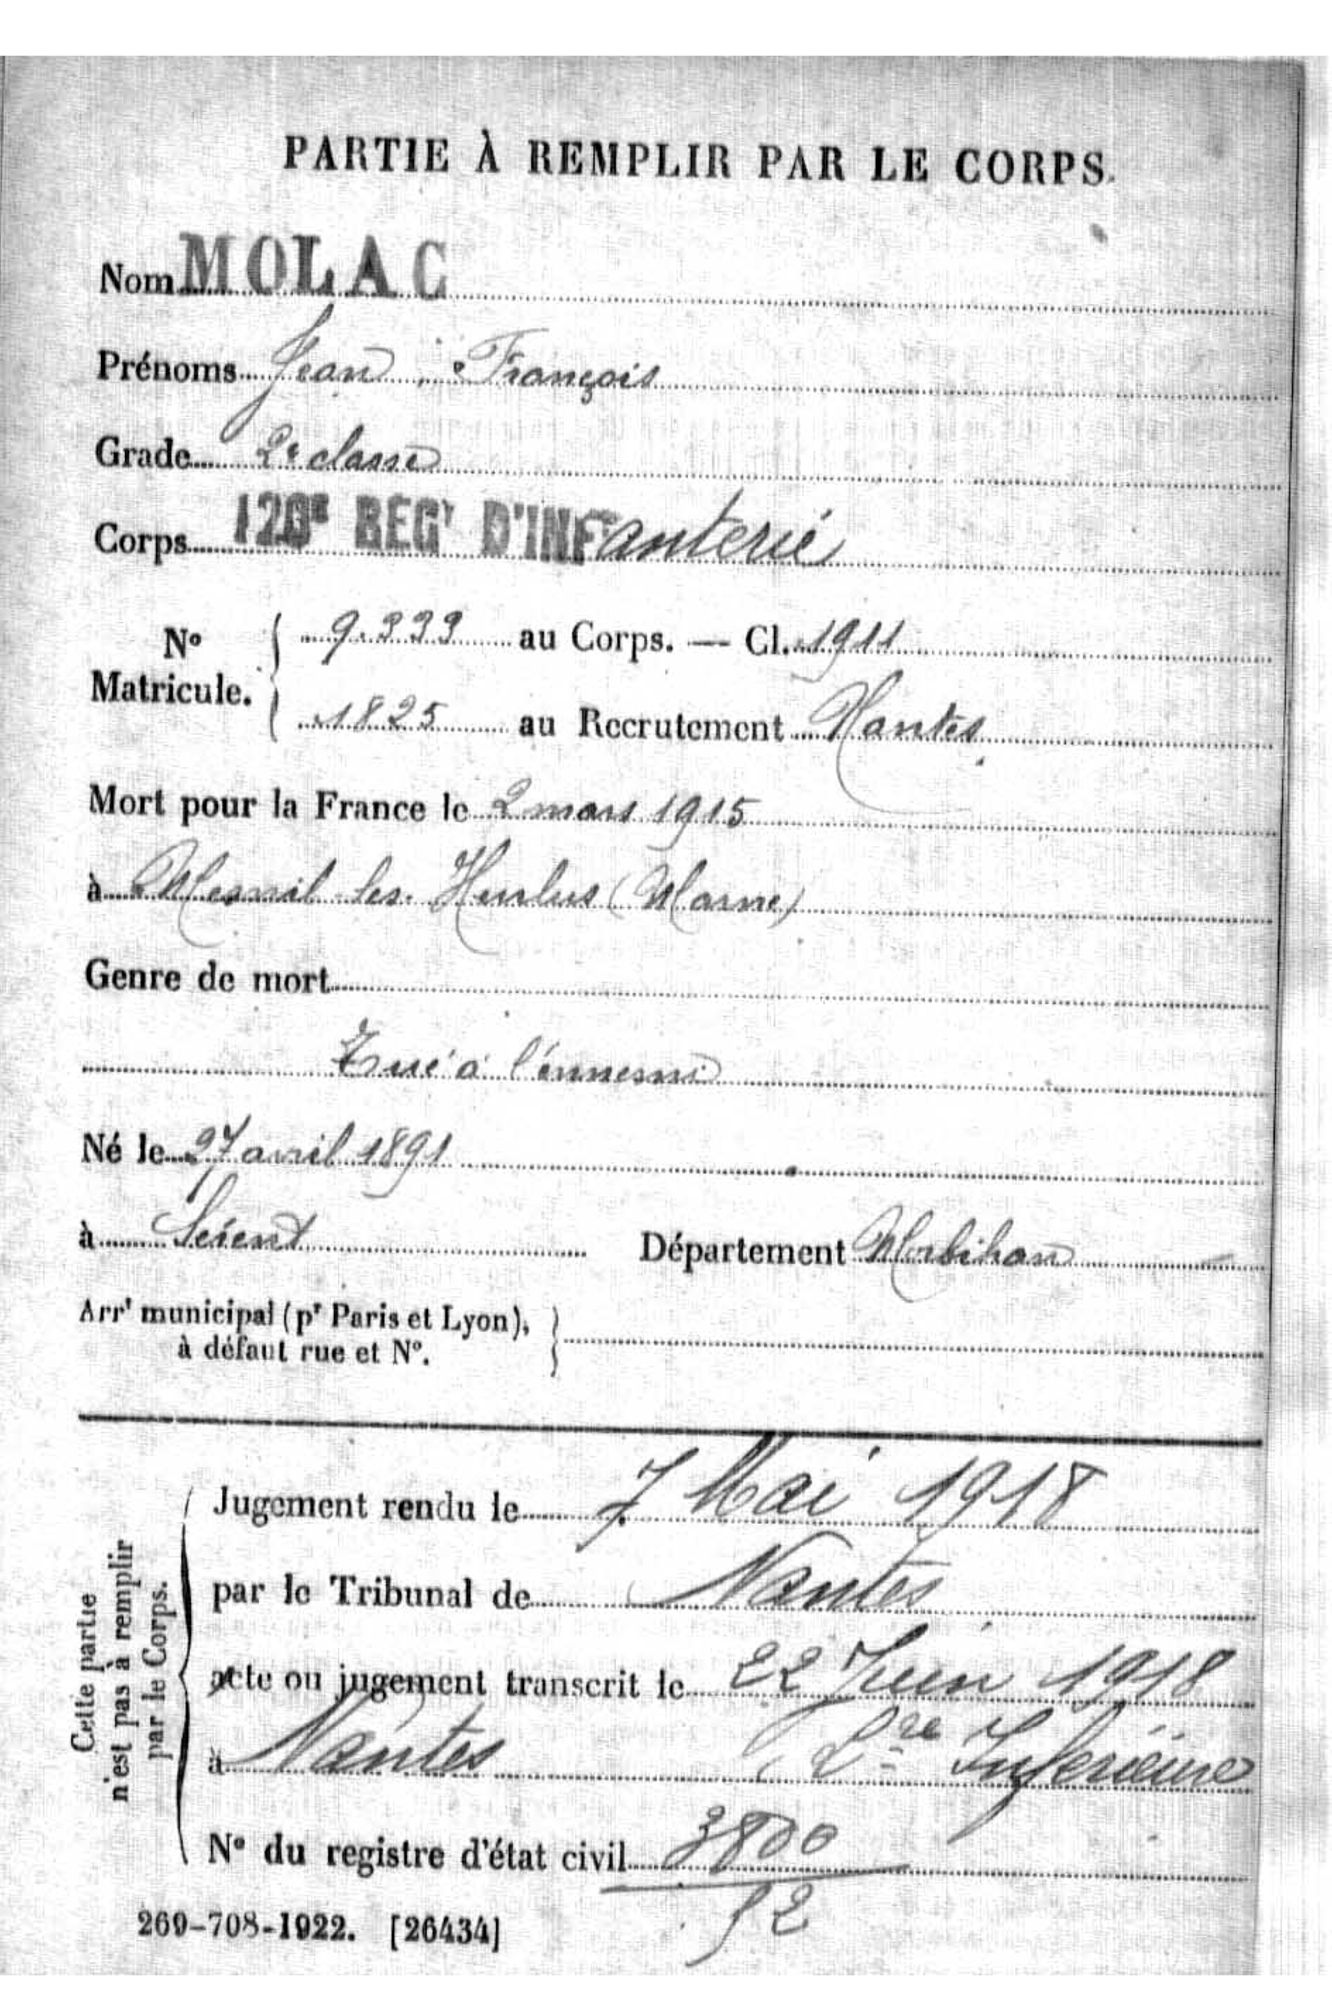 PARTIE À REMPLIR PAR LE CORPS.
Nom MOLAC
Prénoms Jean François
Grade 2e classe
Corps 120e REGt D'INFanterie
No Matricule. 9.333 au Corps. — Cl. 1911
1825 au Recrutement Nantes
Mort pour la France le 2 mars 1915
à Mesnil-les-Hurlus (Marne)
Genre de mort
Tué à l'ennemi
Né le 27 avril 1891
à Sérent Département Morbihan
Arrt municipal (pr Paris et Lyon),
à défaut rue et No.
Cette partie
n'est pas à remplir
par le Corps.
Jugement rendu le 7 Mai 1918
par le Tribunal de Nantes
acte ou jugement transcrit le 22 Juin 1918
à Nantes (Lre Inférieure
No du registre d'état civil 3800
52
269-708-1922. [26434]